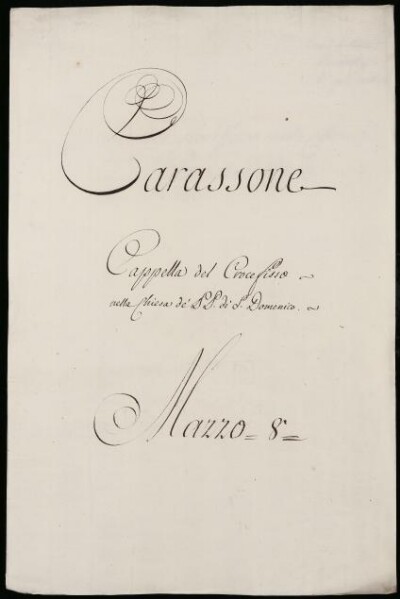 Carassone
Cappella del Crocefisso
nella Chiesa de' P.P. di S. Domenico.
Mazzo = 8 =